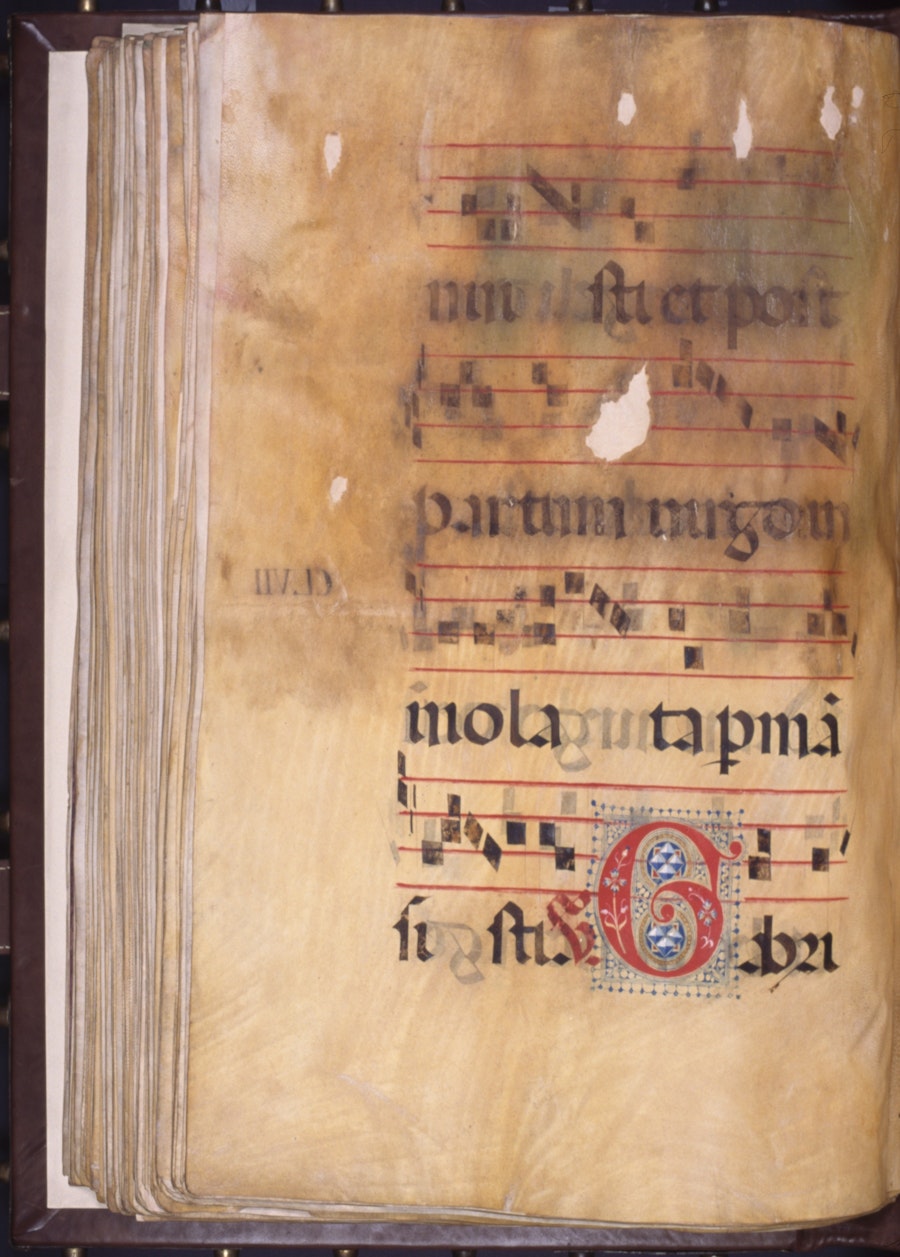 nui sti et post
partum uirgo in
uiola ta pmā
si sti. ℣. Gabri